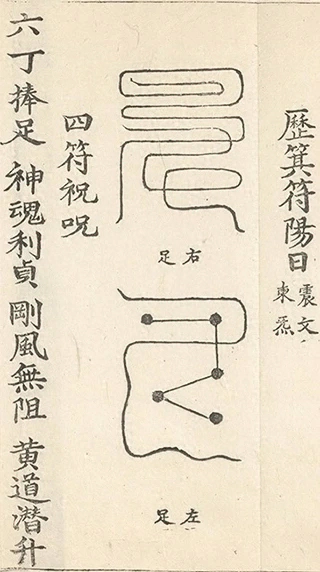 歷箕符陽日
文炁
震東
右足
左足
四符祝呪
六丁捧足 神魂利貞 剛風無阻 黄道潛升